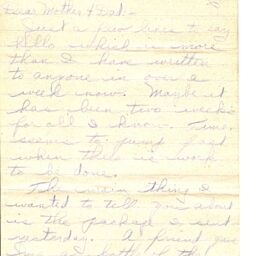 Dear Mother & Dad -
Just a few lines to say
Hello which is more
than I have written
to anyone in over a
week now. Maybe it
has been two weeks
for all I know. Time
seems to jump past
when there is work
to be done.
The main thing I
wanted to tell you about
is the package I sent
yesterday. A friend gave